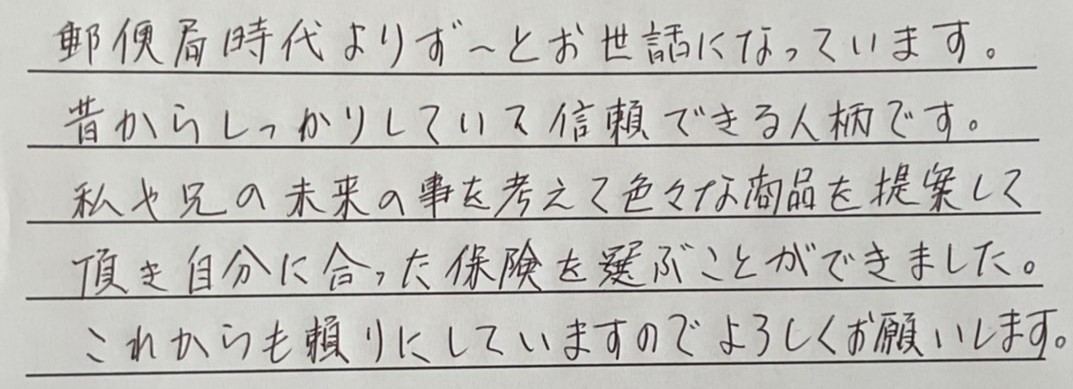 郵便局時代よりず〜とお世話になっています。
昔からしっかりしていて信頼できる人柄です。
私や兄の未来の事を考えて色々な商品を提案して
頂き自分に合った保険を選ぶことができました。
これからも頼りにしていますのでよろしくお願いします。